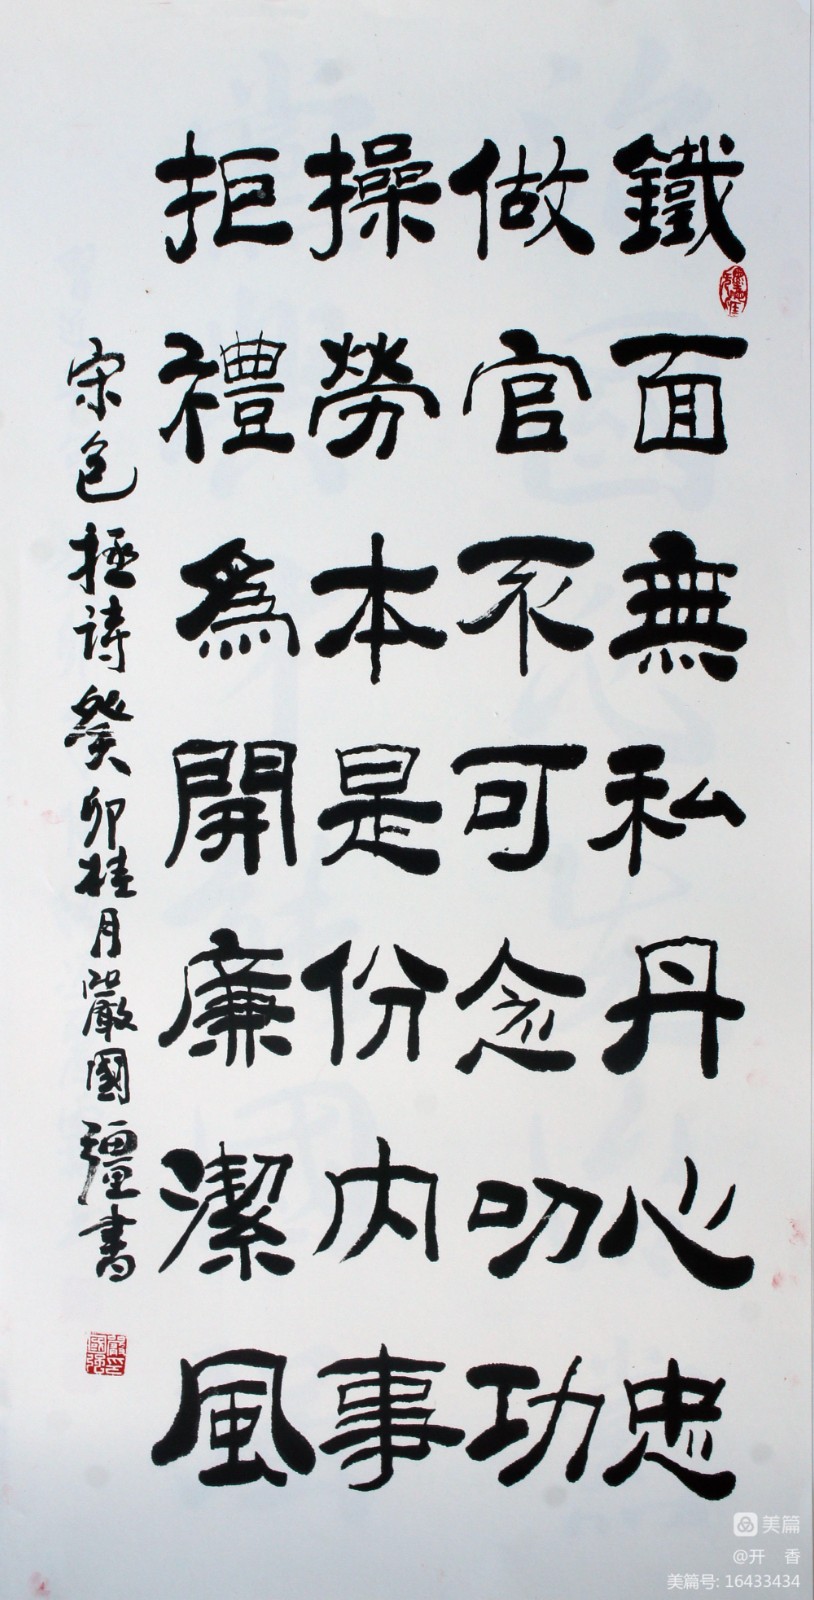 鐵面無私丹心忠
做官不可念叨功
操勞本是份内事
拒禮為開廉潔風
宋包拯詩癸卯桂月嚴國疆書
美篇
@开 香
美篇号: 16433434